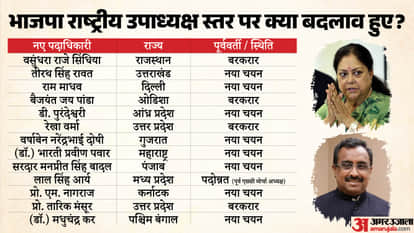 भाजपा राष्ट्रीय उपाध्यक्ष स्तर पर क्या बदलाव हुए?
नए पदाधिकारी राज्य पूर्ववर्ती / स्थिति
वसुंधरा राजे सिंधिया राजस्थान बरकरार
तीरथ सिंह रावत उत्तराखंड नया चयन
राम माधव दिल्ली नया चयन
बैजयंत जय पांडा ओडिशा बरकरार
डी. पुरंदेश्वरी आंध्र प्रदेश नया चयन
रेखा वर्मा उत्तर प्रदेश बरकरार
वर्षाबेन नरेंद्रभाई दोषी गुजरात नया चयन
(डॉ.) भारती प्रवीण पवार महाराष्ट्र नया चयन
सरदार मनप्रीत सिंह बादल पंजाब नया चयन
लाल सिंह आर्य मध्य प्रदेश पदोन्नत (पूर्व एससी मोर्चा अध्यक्ष)
प्रो. एम. नागराज कर्नाटक नया चयन
प्रो. तारिक मंसूर उत्तर प्रदेश बरकरार
(डॉ.) मधुचंद्र कर पश्चिम बंगाल नया चयन
अ अमर उजाला
amarujala.com